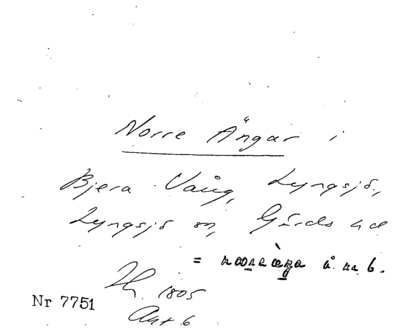 Norre Ängar i
Bjera Vång, Lyngsjö,
Lyngsjö sn, Gärds hd
= å nr 6.
1805
Nr 7751
Akt 6